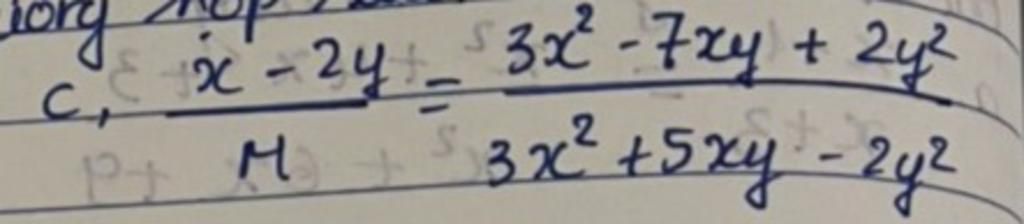 c, x - 2y / M = 3x² - 7xy + 2y² / 3x² + 5xy - 2y²